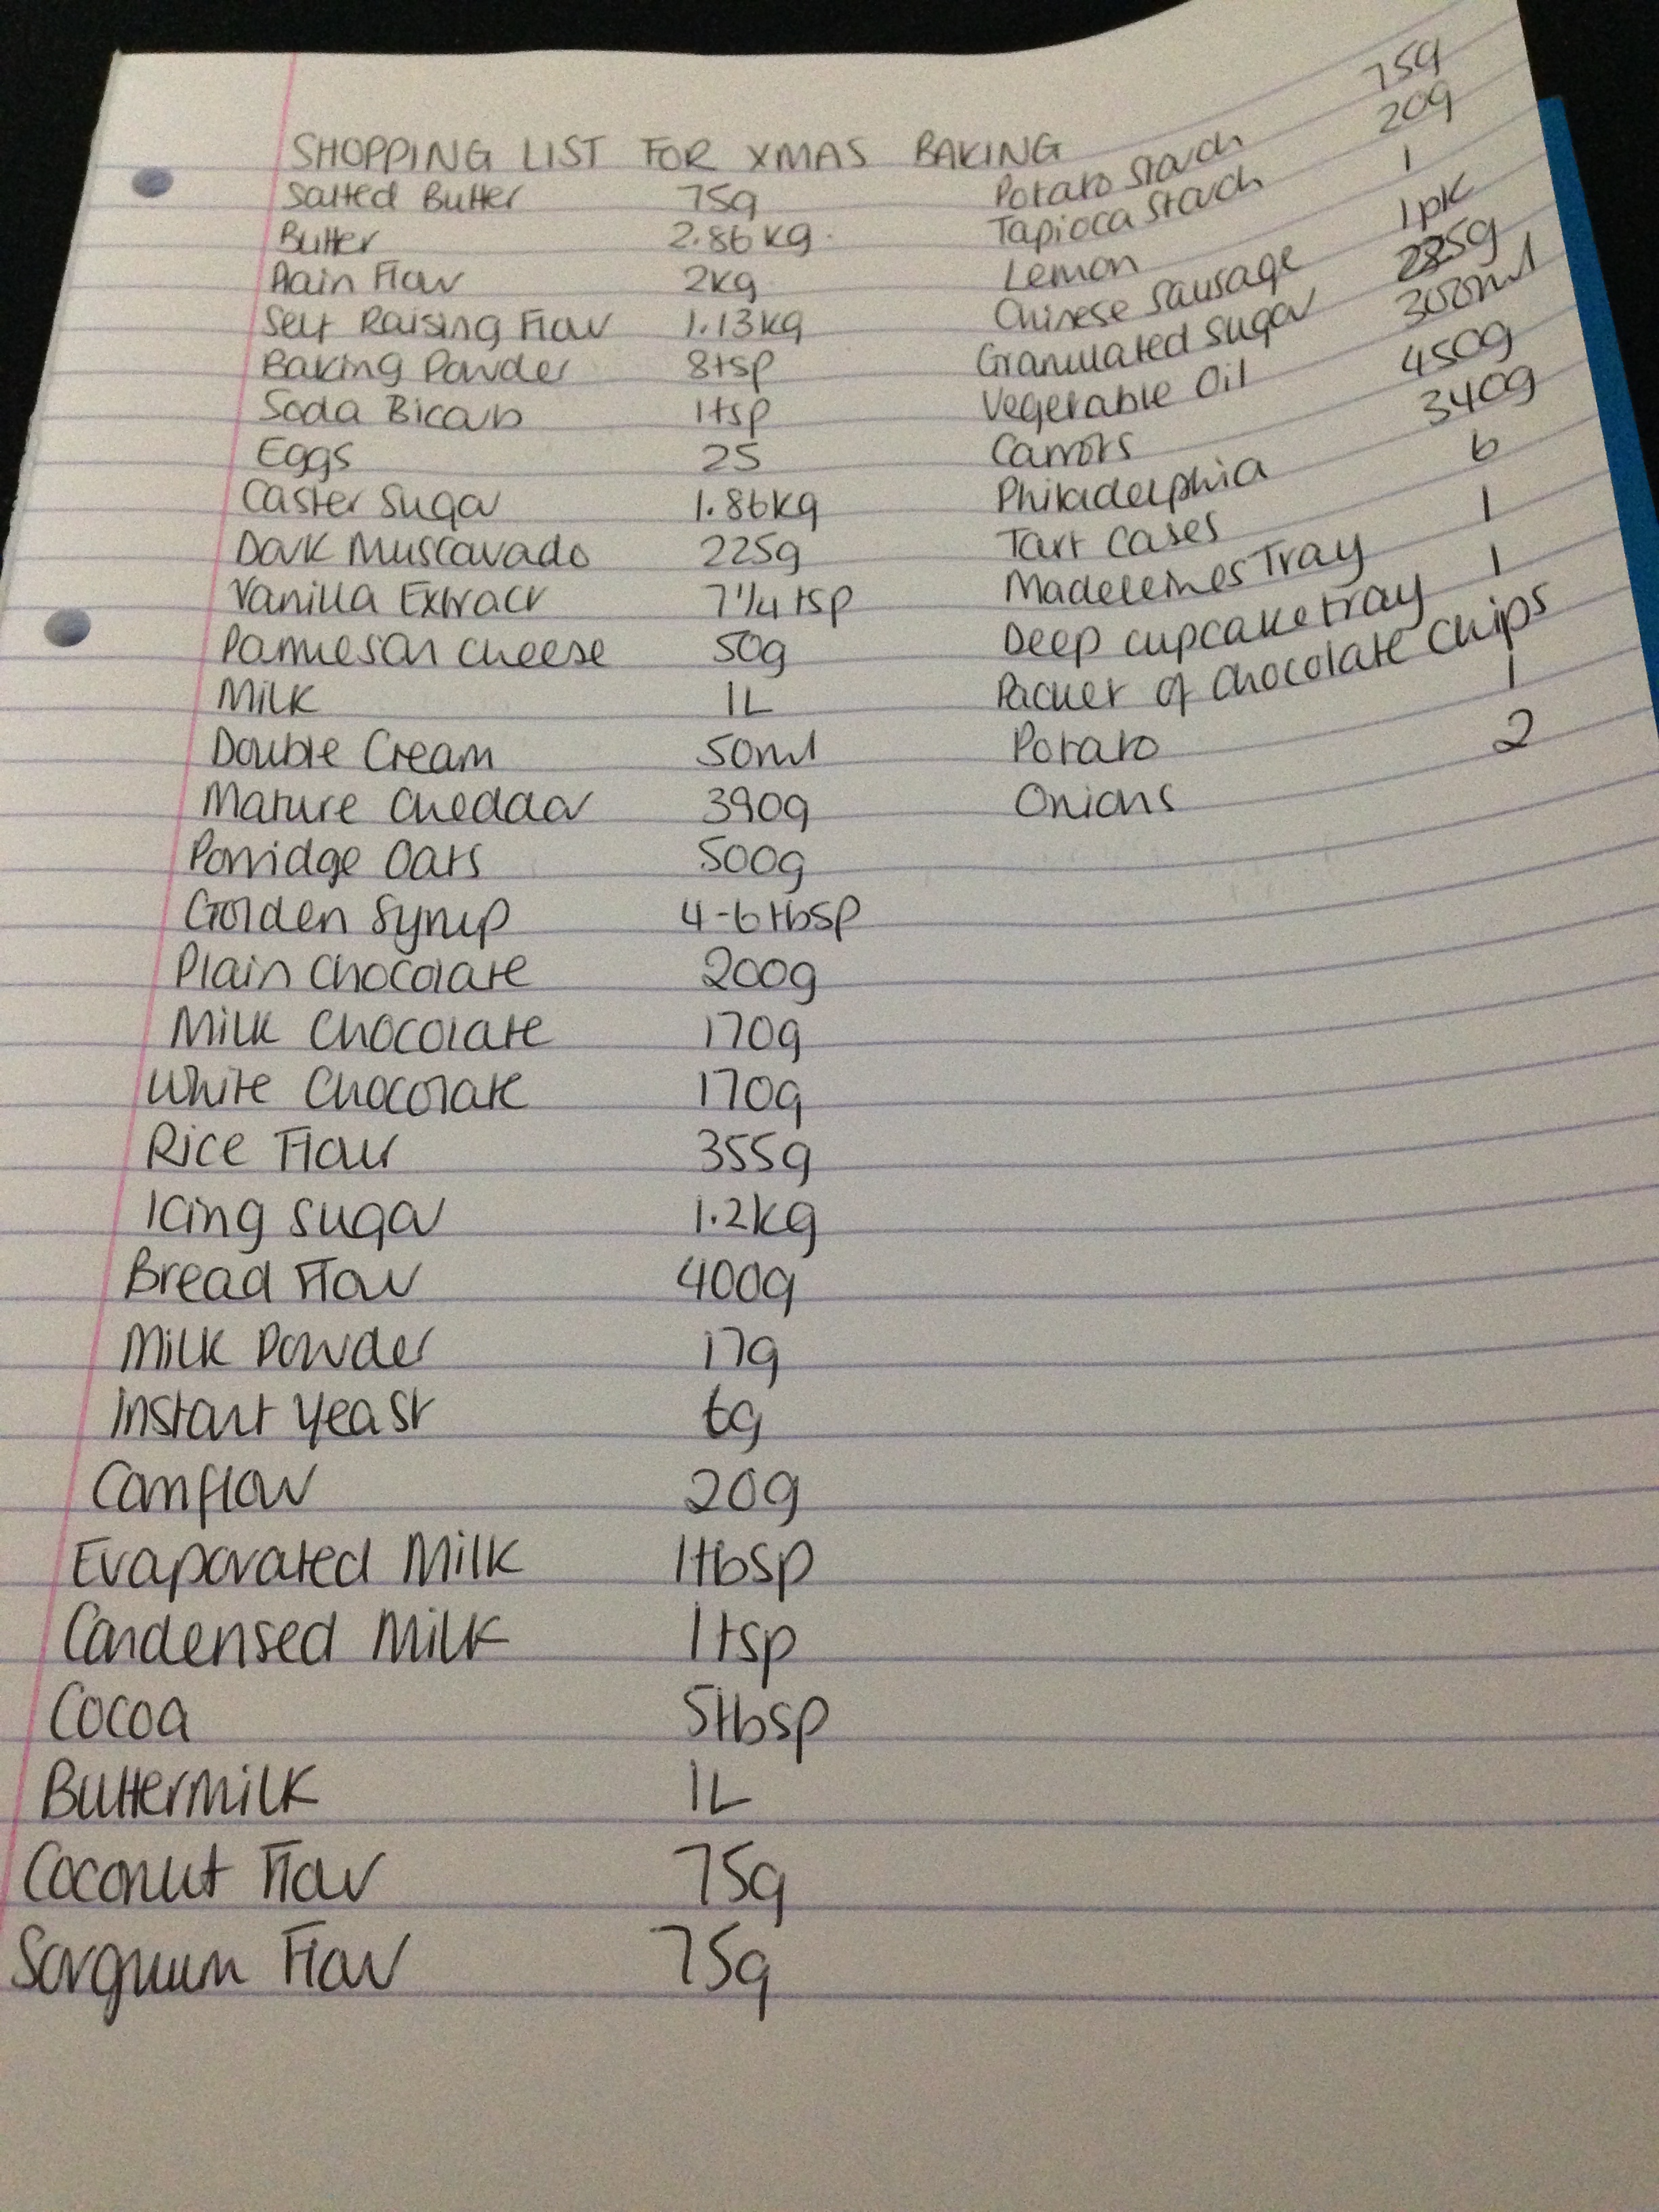 SHOPPING LIST FOR XMAS BAKING
Salted Butter 75g
Butter 2.86kg
Plain Flour 2kg
Self Raising Flour 1.13kg
Baking Powder 8tsp
Soda Bicarb 1tsp
Eggs 25
Caster Sugar 1.86kg
Dark Muscavado 225g
Vanilla Extract 7 1/4 tsp
Parmesan Cheese 50g
Milk 1L
Double Cream 50ml
Mature Cheddar 390g
Porridge Oats 500g
Golden Syrup 4-6tbsp
Plain Chocolate 200g
Milk Chocolate 170g
White Chocolate 170g
Rice Flour 355g
Icing Sugar 1.2kg
Bread Flour 400g
Milk Powder 17g
Instant Yeast 6g
Cornflour 20g
Evaporated Milk 1tbsp
Condensed Milk 1tsp
Cocoa 5tbsp
Buttermilk 1L
Coconut Flour 75g
Sorghum Flour 75g
Potato Starch 75g
Tapioca Starch 20g
Lemon 1
Chinese Sausage 1pk
Granulated Sugar
Vegetable Oil 300ml
Carrots 450g
Philadelphia 340g
Tart Cases 6
Madeleines Tray 1
Deep Cupcake tray 1
Packet of Chocolate Chips
Potato 1
Onions 2